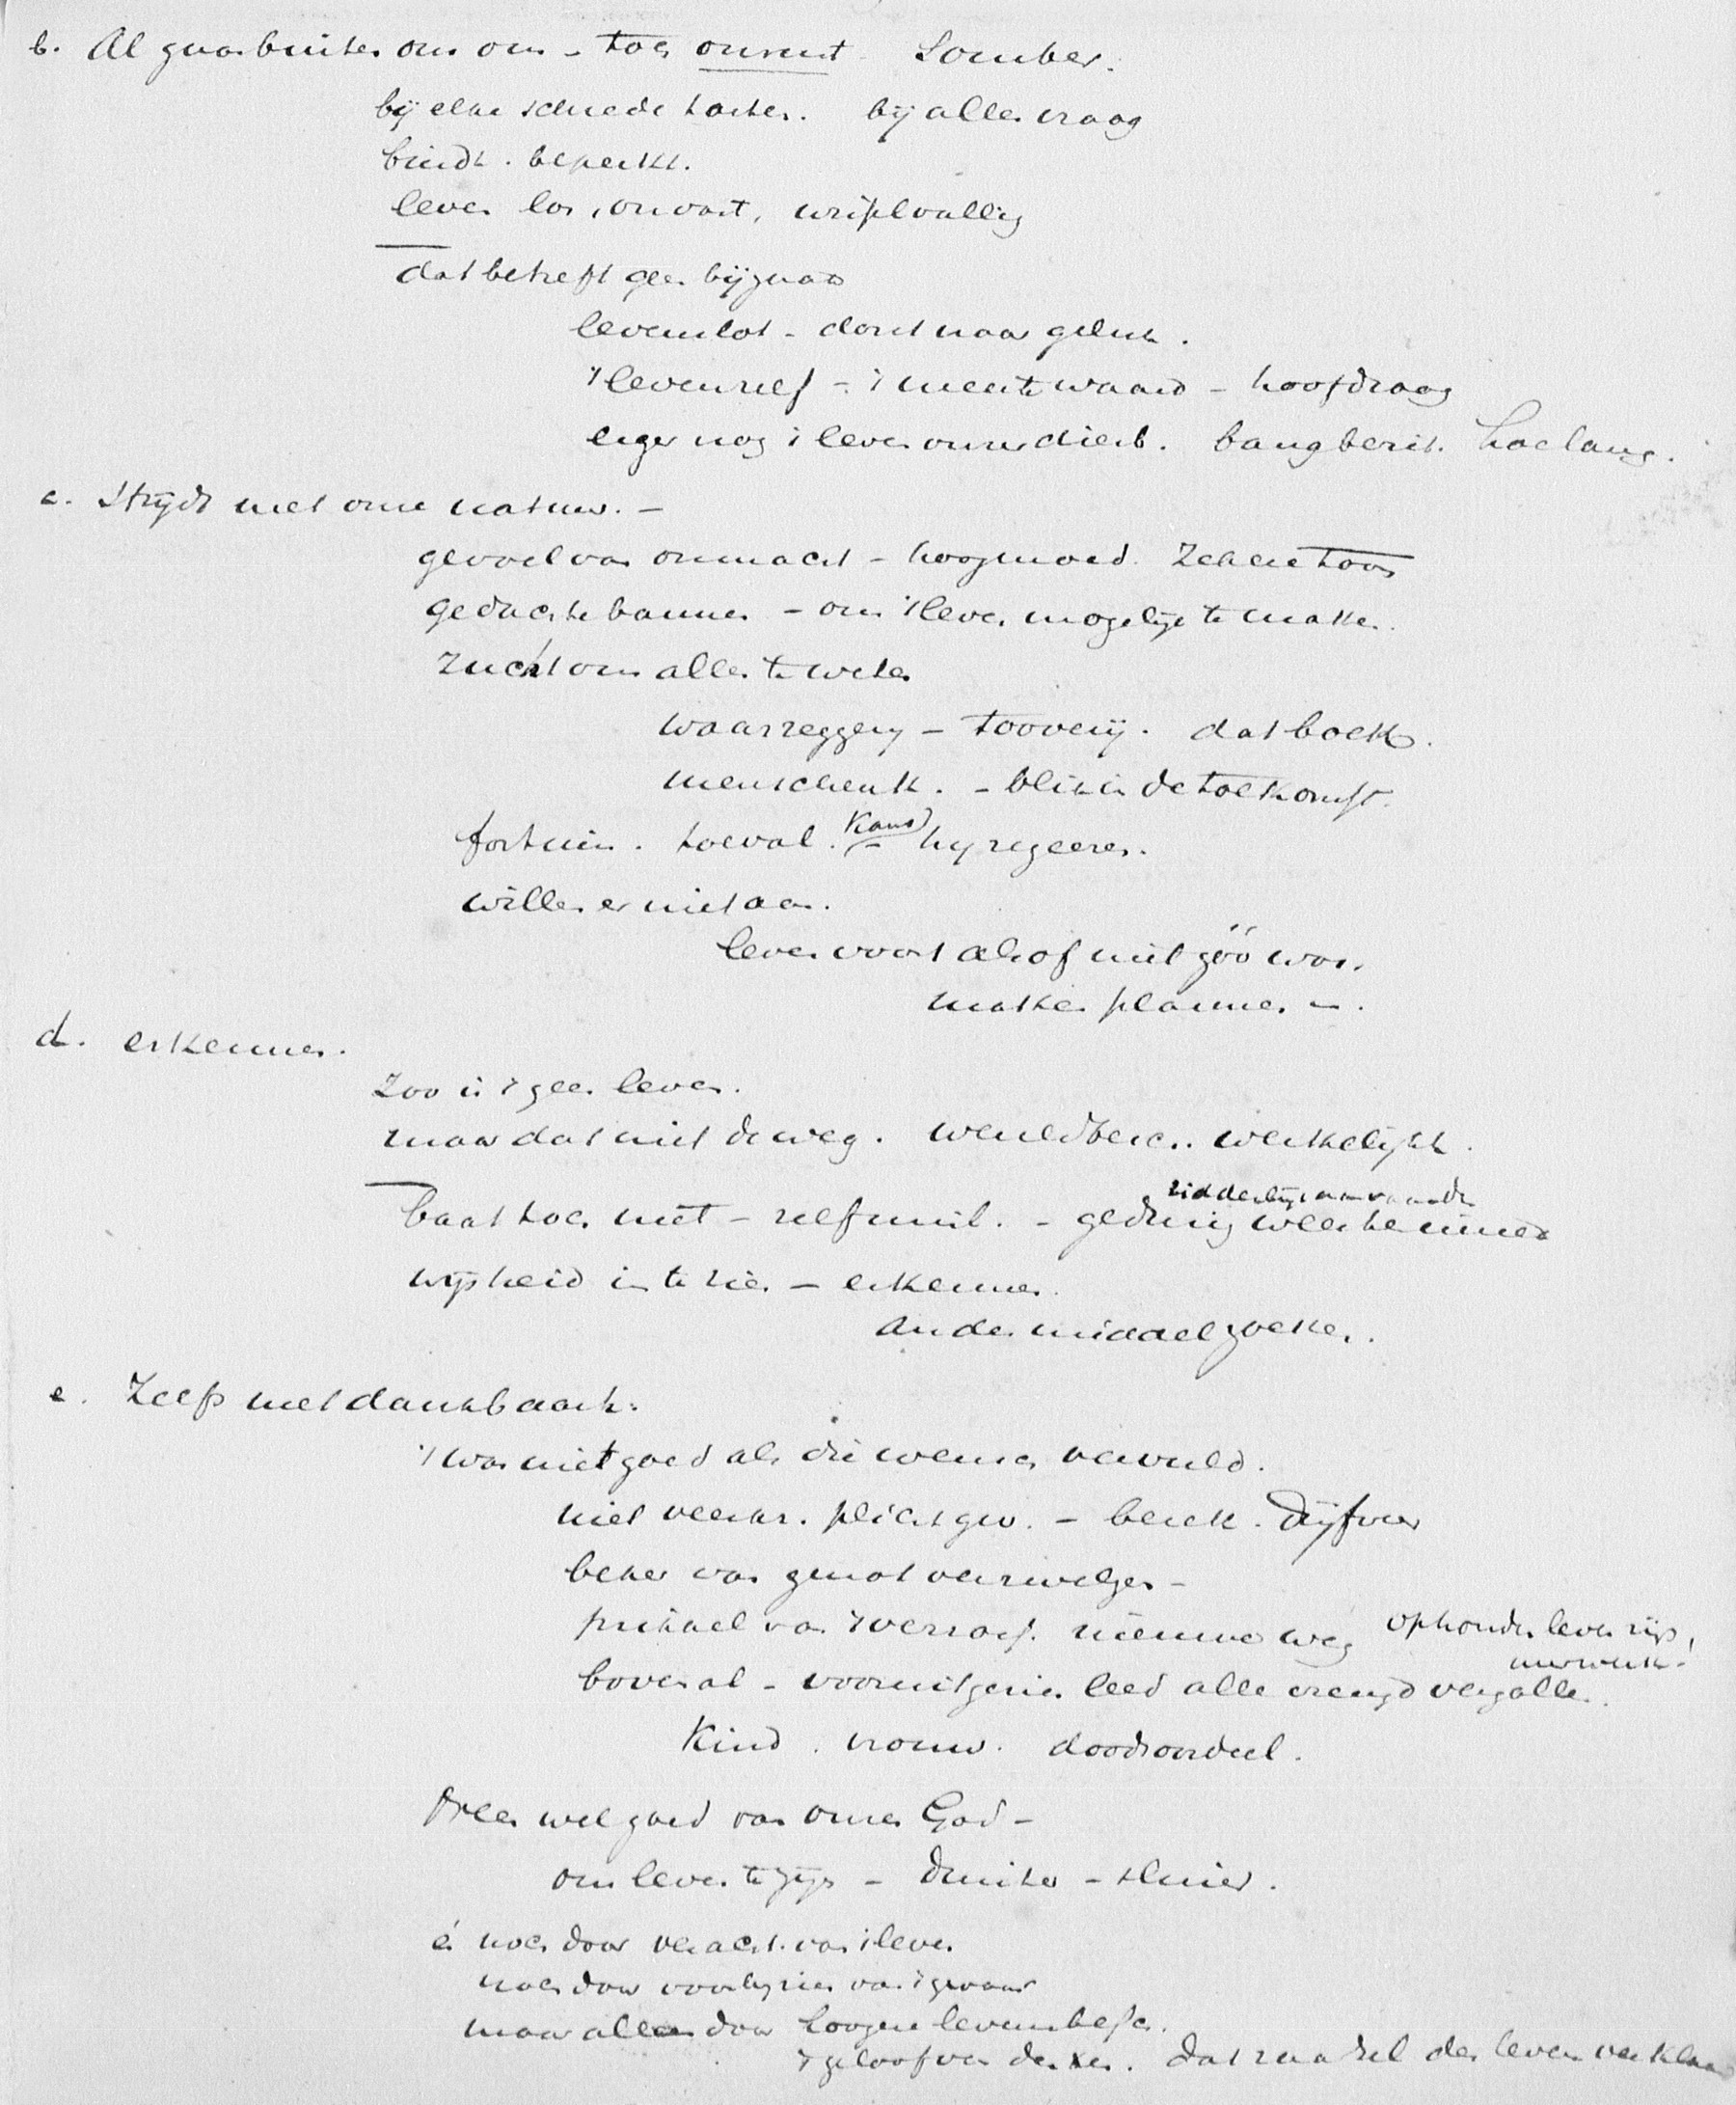 b. Al gaan buiten ons om - toch onrust. Somber.
bij elke schrede tasten. bij alles vraag
bindt. beperkt.
leven los, onvast, wisselvallig
dat betreft geen bijzaak
levenslot - dorst naar geluk.
't leven zelf - 't meest waard - hoofdvraag
erger nog 't leven onzer dierb. bang bezit. hoe lang.
c. Strijdt met onze natuur. -
gevoel van onmacht - hoogmoed. Zekere toon
gedachte bannen - om 't leven mogelijk te maken.
zucht om alles te weten
waarzeggerij - tooverij. dat boek.
menschenk. - blik in de toekomst.
fortuin. toeval. Kans - hij regeeren.
willen er niet aan.
leven voort alsof niet zóó was.
maken plannen -.
d. erkennen.
Zoo is 't geen leven.
maar dat niet de weg. wereldbesc.. werkelijkh.
baat toch niet - zelfmisl. - gedurig weer herinnerd
ridderlijk aanvaarden
wijsheid in te zien - erkennen.
ander middel zoeken.
e. Zelfs met dankbaarh.
't was niet goed als die wensch vervuld.
niet veerkr. plichtgev. - berek. drijfveer
beker van genot verzwelgen -
prikkel van 't verrass. nieuwe weg ophouden leven zijn,
uurwerk.
bovenal - vooruitgezien leed alle vreugd vergallen.
Kind. vrouw. doodsoordeel.
Alles wel goed van onzen God -
om leven te zijn - duister - sluier.
é noch door veracht. van 't leven
noch door voorbijzien van 't gevaar
maar alleen door hoogere levensbesch.
't geloof van den Chr. dat raadsel des levens verklaart